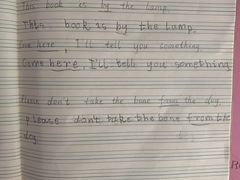 This book is by the lamp.
This book is by the lamp.
Come here, I'll tell you something.
Come here, I'll tell you something
Please don't take the bone from the dog.
please don't take the bone from the
dog.